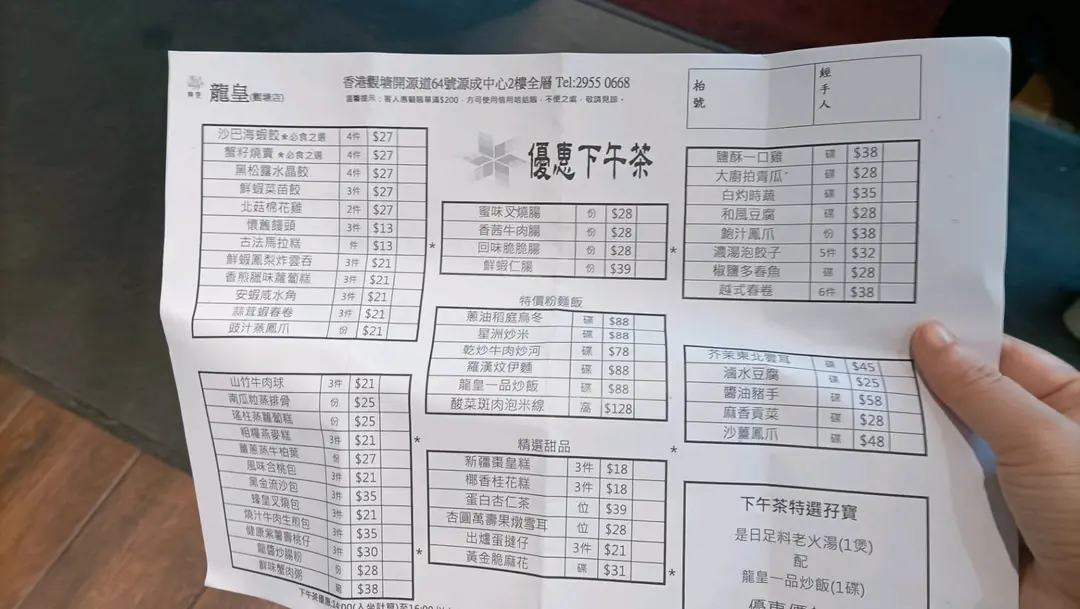 龍皇(觀塘店)
香港觀塘開源道64號源成中心2樓全層 Tel:2955 0668
溫馨提示：客人惠顧賬單滿$200，方可使用信用咭結賬，不便之處，敬請見諒。
枱號
經手人
優惠下午茶
沙巴海蝦餃★必食之選 4件 $27
蟹籽燒賣★必食之選 4件 $27
黑松露水晶餃 4件 $27
鮮蝦菜苗餃 3件 $27
北菇棉花雞 2件 $27
懷舊饅頭 3件 $13
古法馬拉糕 件 $13
鮮蝦鳳梨炸雲吞 3件 $21
香煎臘味蘿蔔糕 3件 $21
安蝦咸水角 3件 $21
蒜茸蝦春卷 3件 $21
豉汁蒸鳳爪 份 $21
山竹牛肉球 3件 $21
南瓜粒蒸排骨 份 $25
瑤柱蒸蘿蔔糕 份 $25
粗糧燕麥糕 3件 $21
薑蔥蒸牛柏葉 份 $27
風味合桃包 3件 $21
黑金流沙包 3件 $35
蠔皇叉燒包 3件 $21
燒汁牛肉生煎包 3件 $35
健康紫薯壽桃仔 3件 $30
龍醬炒腸粉 份 $28
鮮味蟹肉粥 $38
蜜味叉燒腸 份 $28
香茜牛肉腸 份 $28
回味脆脆腸 份 $28
鮮蝦仁腸 份 $39
*
特價粉麵飯
蔥油稻庭烏冬 碟 $88
星洲炒米 碟 $88
乾炒牛肉炒河 碟 $78
羅漢炆伊麵 碟 $88
龍皇一品炒飯 碟 $88
酸菜斑肉泡米線 窩 $128
*
精選甜品
新疆棗皇糕 3件 $18
椰香桂花糕 3件 $18
蛋白杏仁茶 位 $39
杏圓萬壽果燉雪耳 位 $28
出爐蛋撻仔 3件 $21
黃金脆麻花 碟 $31
*
鹽酥一口雞 碟 $38
大廚拍青瓜 碟 $28
白灼時蔬 碟 $35
和風豆腐 碟 $28
鮑汁鳳爪 份 $38
濃湯泡餃子 5件 $32
椒鹽多春魚 碟 $28
越式春卷 6件 $38
*
芥茉東北雲耳 碟 $45
滷水豆腐 碟 $25
醬油豬手 碟 $58
麻香貢菜 碟 $28
沙薑鳳爪 碟 $48
*
下午茶特選孖寶
是日足料老火湯(1煲)
配
龍皇一品炒飯(1碟)
*
下午茶優惠:14:00(入坐計算)至16:00